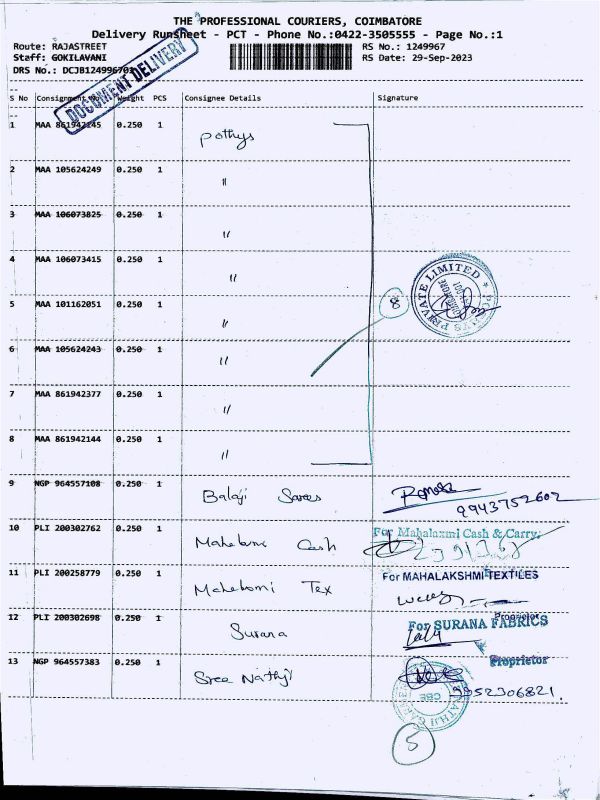 THE PROFESSIONAL COURIERS, COIMBATORE
Delivery Runsheet - PCT - Phone No.:0422-3505555 - Page No.:1
Route: RAJASTREET
RS No.: 1249967
Staff: GOKILAVANI
RS Date: 29-Sep-2023
DRS No.: DCJB1249967
DOCUMENT DELIVERY
S No Consignment Weight PCS Consignee Details Signature
1 MAA 861942245 0.250 1 Pothys
2 MAA 105624249 0.250 1 "
3 MAA 106073825 0.250 1 "
4 MAA 106073415 0.250 1 "
PRIVATE LIMITED
5 MAA 101162051 0.250 1 "
8
6 MAA 105624243 0.250 1 "
7 MAA 861942377 0.250 1 "
8 MAA 861942144 0.250 1 "
9 NGP 964557108 0.250 1 Balaji Sarees
9943752602
10 PLI 200302762 0.250 1 Mahalaxmi Cash
For Mahalaxmi Cash & Carry.
11 PLI 200258779 0.250 1 Mahelaxmi Tex
For MAHALAKSHMI TEXTILES
Proprietor
12 PLI 200302698 0.250 1 Surana
For SURANA FABRICS
Proprietor
13 NGP 964557383 0.250 1 Sree Nathji
CBE
9952306821.
5